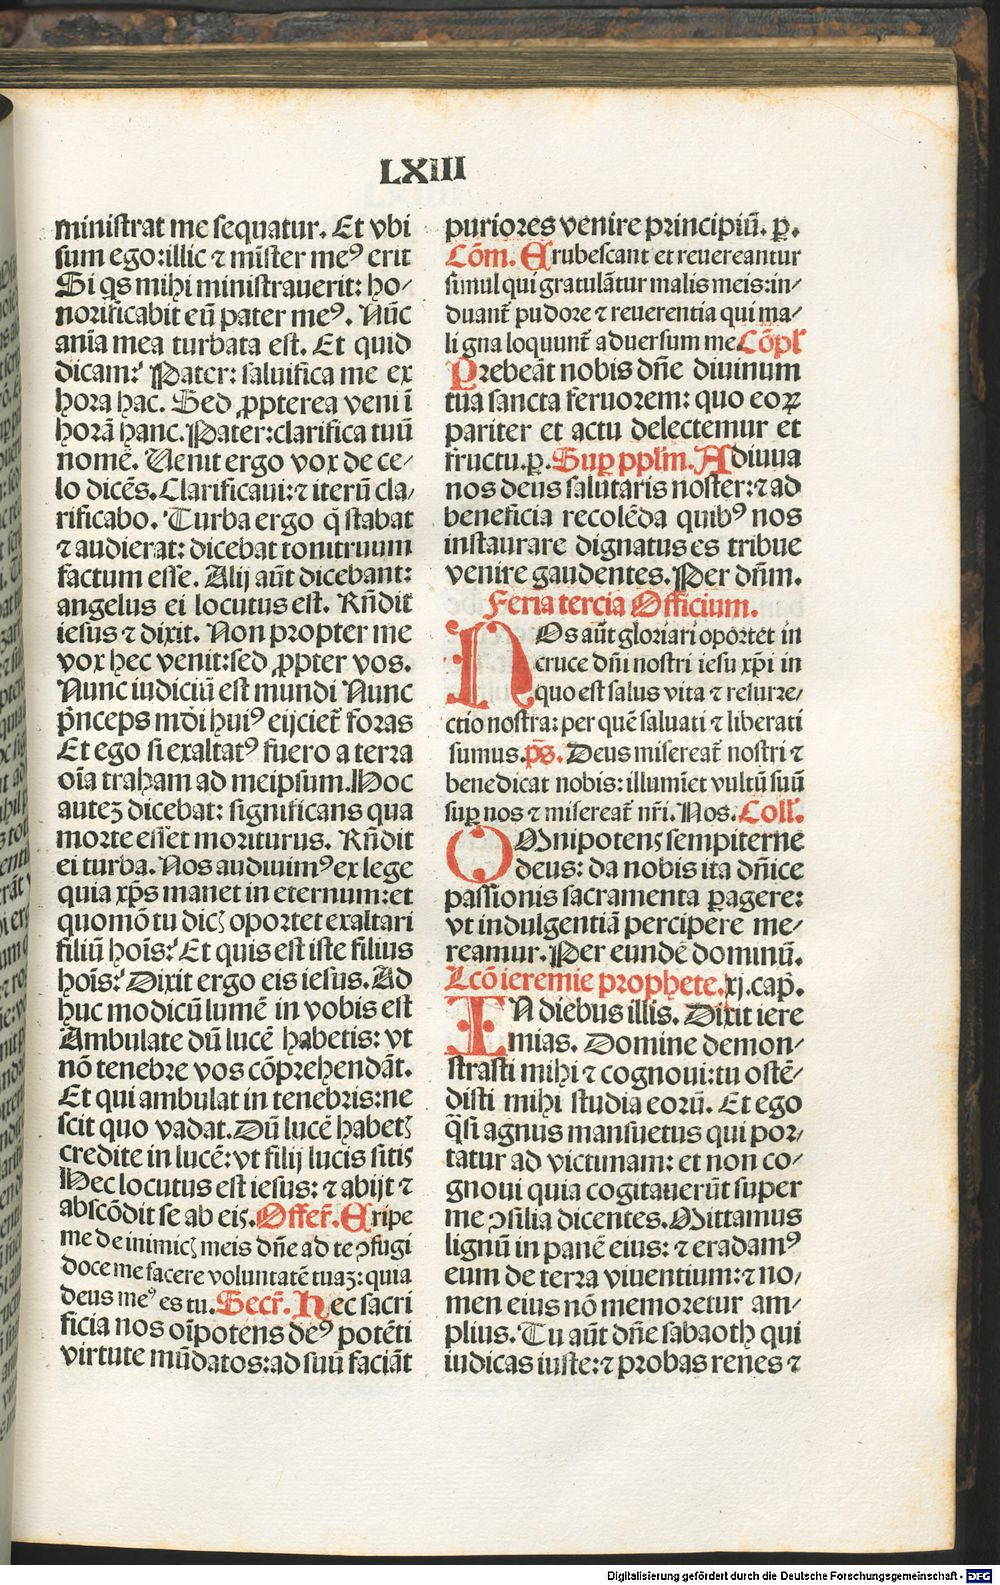 LXIII
ministrat me sequatur. Et vbi
sum ego:illic ⁊ mīster meꝰ erit
Si qs mihi ministrauerit: ho⸗
norificabit eū pater meꝰ. Nūc
anīa mea turbata est. Et quid
dicam: Pater: saluifica me ex
hora hac. Sed ꝓpterea veni ī
horā hanc. Pater:clarifica tuū
nomē. Uenit ergo vox de ce⸗
lo dicēs. Clarificaui:⁊ iterū cla⸗
rificabo. Turba ergo q̄ stabat
⁊ audierat: dicebat tonitruum
factum esse. Alij aūt dicebant:
angelus ei locutus est. Rn̄dit
iesus ⁊ dixit. Non propter me
vox hec venit:sed ꝓpter vos.
Nunc iudiciū est mundi Nunc
pͥnceps mūdi huiꝰ eijciet̄ foras
Et ego si exaltatꝰ fuero a terra
oīa traham ad meipsum. Hoc
auteꝫ dicebat: significans qua
morte esset moriturus. Rn̄dit
ei turba. Nos audiuimꝰ ex lege
quia xp̄s manet in eternum:et
quomō tu dicꝭ oportet exaltari
filiū hoīs: Et quis est iste filius
hoīs: Dixit ergo eis iesus. Ad
huc modicū lumē in vobis est
Ambulate dū lucē habetis: vt
nō tenebre vos cōprehendāt.
Et qui ambulat in tenebris:ne
scit quo vadat. Dū lucē habetꝭ
credite in lucē:vt filij lucis sitis
Hec locutus est iesus: ⁊ abijt ⁊
abscōdit se ab eis. Offer̄. Eripe
me de inimicꝭ meis dn̄e ad te ꝯfugi
doce me facere voluntatē tuaꝫ: quia
deus meꝰ es tu. Secr̄. Hec sacri
ficia nos oīpotens deꝰ potēti
virtute mūdatos:ad suū faciāt
puriores venire principiū. ꝑ.
Cōm. Erubescant et reuereantur
simul qui gratulātur malis meis:in⸗
duant̄ pudore ⁊ reuerentia qui ma⸗
ligna loquunt̄ aduersum me Cōpl̄
Prebeāt nobis dn̄e diuinum
tua sancta feruorem: quo eoꝝ
pariter et actu delectemur et
fructu.ꝑ. Suꝑ ppl̄m. Adiuua
nos deus salutaris noster:⁊ ad
beneficia recolēda quibꝰ nos
instaurare dignatus es tribue
venire gaudentes. Per dn̄m.
Feria tercia Officium.
NOs aūt gloriari oportet in
cruce dn̄i nostri iesu xp̄i in
quo est salus vita ⁊ resurre⸗
ctio nostra: per quē saluati ⁊ liberati
sumus. p̄s. Deus misereat̄ nostri ⁊
benedicat nobis: illumīet vultū suū
suꝑ nos ⁊ misereat̄ nr̄i. Nos. Coll̄.
OMnipotens sempiterne
deus: da nobis ita dn̄ice
passionis sacramenta ꝑagere:
vt indulgentiā percipere me⸗
reamur. Per eundē dominū.
Lcō ieremie prophete. xj. cap̄.
IN diebus illis. Dixit iere
mias. Domine demon⸗
strasti mihi ⁊ cognoui:tu ostē⸗
disti mihi studia eorū. Et ego
q̄si agnus mansuetus qui por⸗
tatur ad victimam: et non co⸗
gnoui quia cogitauerūt super
me ꝯsilia dicentes. Mittamus
lignū in panē eius: ⁊ eradamꝰ
eum de terra viuentium:⁊ no⸗
men eius nō memoretur am⸗
plius. Tu aūt dn̄e sabaoth qui
iudicas iuste:⁊ probas renes ⁊
Digitalisierung gefördert durch die Deutsche Forschungsgemeinschaft - DFG